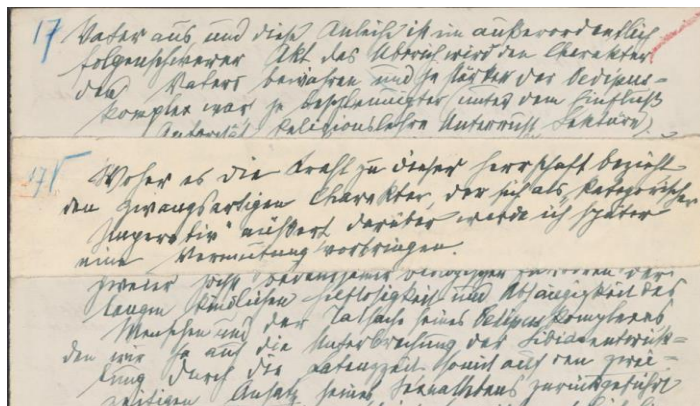 17 Vater aus und diese Anleihe ist ein außerordentlich
folgenschwerer Akt das Überich wird den Charakter
des Vaters bewahren und je stärker der Oedipus-
komplex war je beschleunigter (unter dem Einfluß
Autorität Religionslehre Unterricht Lektüre)
17V Woher es die Kraft zu dieser Herrschaft bezieht
den zwangsartigen Charakter, der sich als kategorischer
Imperativ äußert darüber werde ich später
eine Vermutung vorbringen.
zweier höchst bedeutsamer
langen kindlichen Hilflosigkeit und Abhängigkeit des
Menschen und der Tatsache seines Oedipuskomplexes
den wir ja auf die Unterbrechung der Libidoentwick-
lung durch die Latenzzeit somit auf den zwei-
zeitigen Ansatz seines Sexuallebens zurückgeführt